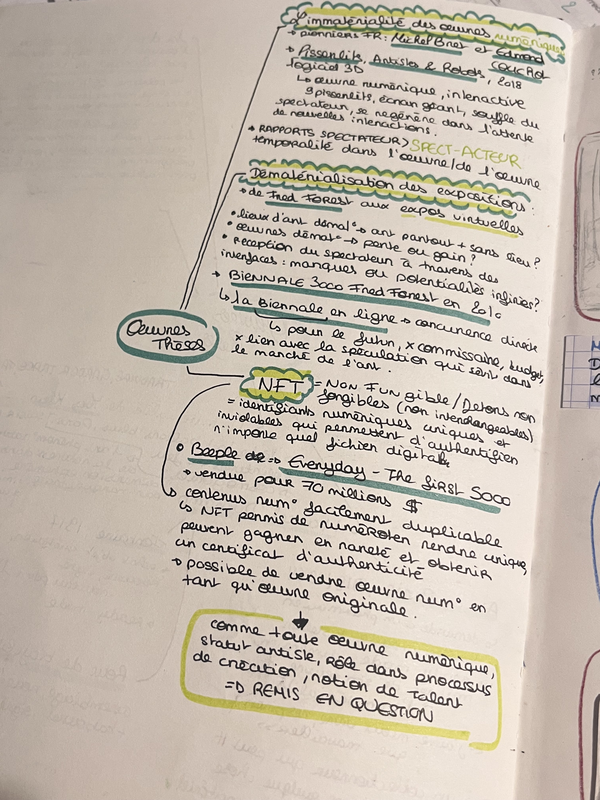 L'immatérialité des œuvres numériques
→ pionniers FR: Michel Bret et Edmond
Couchot
→ Pissenlits, Artistes & Robots, 2018
logiciel 3D
↳ œuvre numérique, interactive
9 pissenlits, écran géant, souffle du
spectateur, se regénère dans l'attente
de nouvelles interactions.
→ RAPPORTS SPECTATEUR > SPECT-ACTEUR
temporalité dans l'œuvre/de l'œuvre
Dématérialisation des expositions:
→ de Fred Forest aux expos virtuelles
• lieux d'art démat° → art partout + sans lieu?
• œuvres démat° → perte ou gain?
• réception du spectateur à travers des
interfaces: manques ou potentialités infinies?
→ BIENNALE 3000 Fred Forest en 2010
↳ la Biennale en ligne → concurrence directe
↳ pour le futur, x commissaire, budget,
x lien avec la spéculation qui sévit dans
le marché de l'art.
Œuvres
Thèses
NFT = Non Fungible / Jetons non
fongibles (non interchangeables)
= identifiants numériques uniques et
inviolables qui permettent d'authentifier
n'importe quel fichier digital.
• Beeple => Everyday - The first 5000
→ vendue pour 70 millions $
↳ contenus num° facilement duplicable
↳ NFT permis de numéroter rendre unique,
peuvent gagner en rareté et obtenir
un certificat d'authenticité
→ possible de vendre œuvre num° en
tant qu'œuvre originale.
↓
comme toute œuvre numérique,
statut artiste, rôle dans processus
de création, notion de talent
=> REMIS EN QUESTION